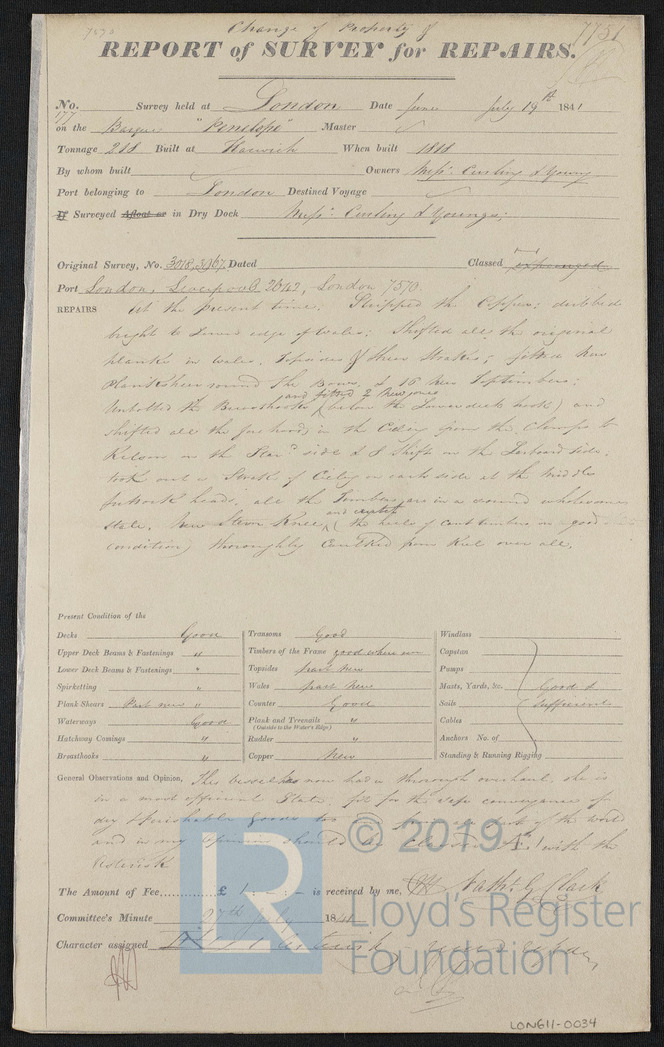 7570 Change of Property & 7751
REPORT of SURVEY for REPAIRS.
No. 177 Survey held at London Date June July 19th 1841
on the Barque "Penelope" Master
Tonnage 288 Built at Harwich When built 1818
By whom built Owners Messrs. Curling & Young
Port belonging to London Destined Voyage
If Surveyed Afloat or in Dry Dock Messrs. Curling & Youngs;
Original Survey, No. Dated Classed expunged
Port London, Liverpool 2642, London 7570
REPAIRS At the present time. Stripped the Copper; dubbed
bright to lower edge of wales; Shifted all the original
planks in wales, Topsides & Sheer Strakes; fitted New
Planksheer round the Bows, & 16 New Top timbers;
and fitted 2 New ones
Unbolted the Breasthooks (below the Lower deck hook) and
shifted all the fore hoods in the Ceiling from the Clamps to
Kelson on the Starbd side & 8 Shifts on the Larboard side.
took out a Strake of Ceiling on each side at the Middle
futtock heads. all the Timbers are in a sound wholesome
state. New Stern Knee, (the heels of cant timbers in a good
condition) thoroughly Caulked from Keel over all.
Present Condition of the
Decks Good
Upper Deck Beams & Fastenings "
Lower Deck Beams & Fastenings "
Spirketting "
Plank-Shears Part new "
Waterways Good
Hatchway Comings "
Breasthooks "
Transoms Good
Timbers of the Frame good where seen
Topsides part New
Wales part New
Counter Good
Plank and Treenails "
(Outside to the Water's Edge)
Rudder "
Copper New
Windlass
Capstan
Pumps
Masts, Yards, &c. Good &
Sails Sufficient
Cables
Anchors No. of
Standing & Running Rigging
General Observations and Opinion, This vessel has now had a thorough overhaul, she is
in a most efficient State, fit for the safe conveyance of
dry & perishable goods to and from any part of the world
and in my opinion should be classed Æ 1 with the
Asterisk
The Amount of Fee............£ 1 : - : - is received by me, Nathl. G. Clark
Committee's Minute 27th July 1841
Character assigned
© 2019
LR
Lloyd's Register
Foundation
LON611-0034